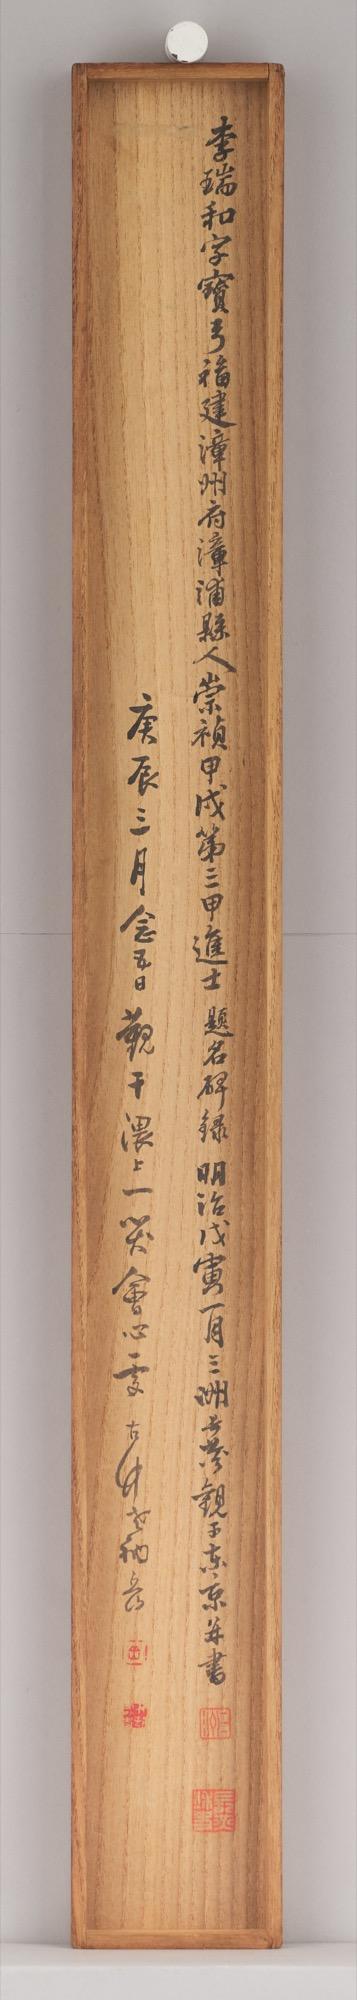 李瑞和字寶弓福建漳州府漳浦縣人崇禎甲戌第三甲進士 題名碑録 明治戊寅一月三洲長炗觀于東京并書
庚辰三月念五日觀于澴上一笑會心處 古竹老衲